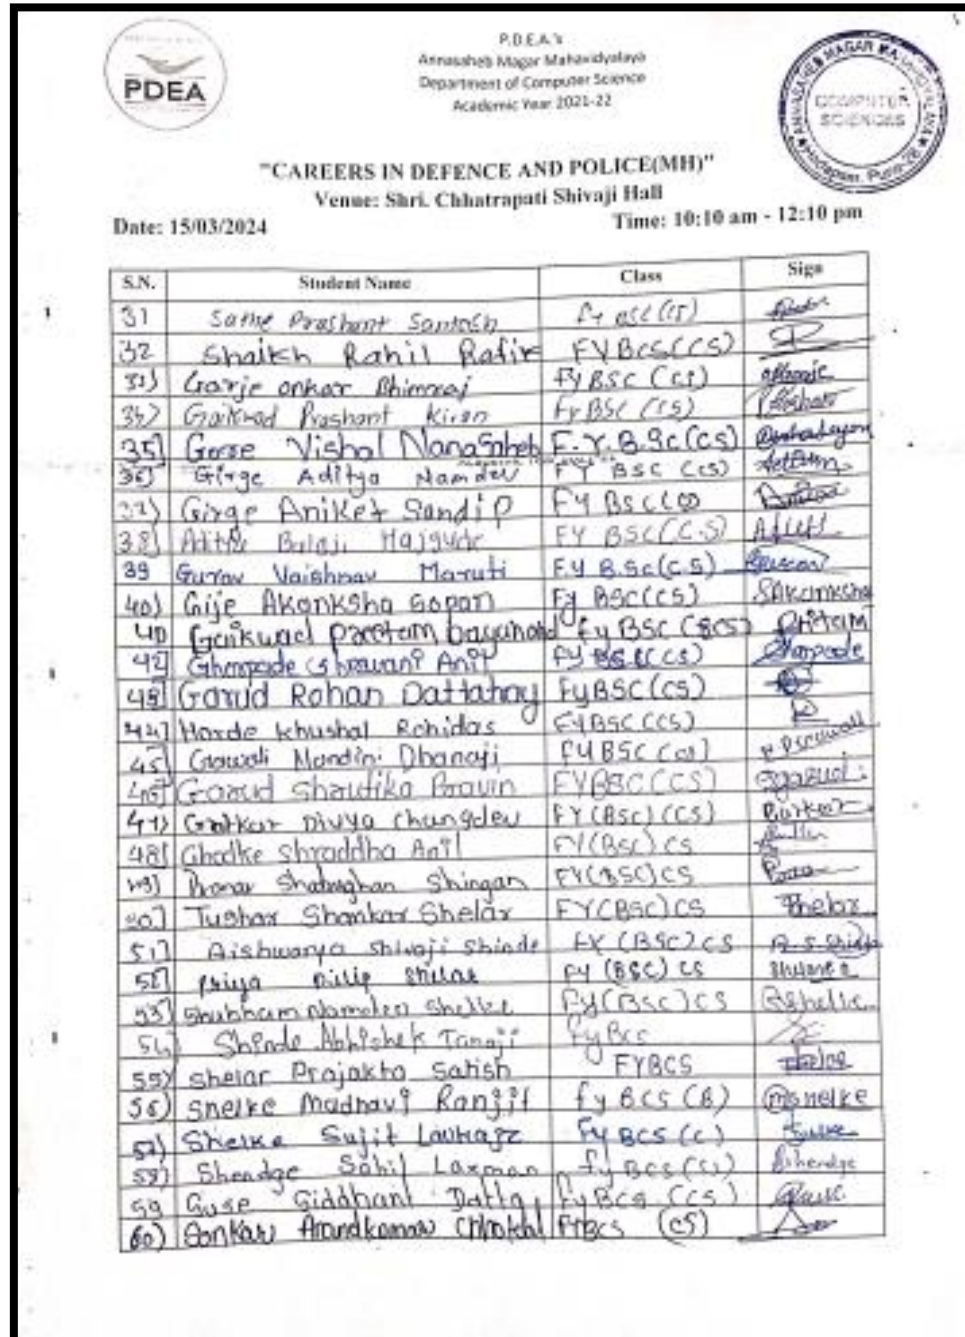 PDEA
P.D.E.A.'s
Annasaheb Magar Mahavidyalaya
Department of Computer Science
Academic Year 2021-22
ANNASAHEB MAGAR MAHAVIDYALAYA
COMPUTER
SCIENCES
Hadapsar, Pune-28
"CAREERS IN DEFENCE AND POLICE(MH)"
Venue: Shri. Chhatrapati Shivaji Hall
Date: 15/03/2024 Time: 10:10 am - 12:10 pm
S.N. Student Name Class Sign
31 Sathe Prashant Santosh Fy BSC (CS)
32 Shaikh Rahil Rafik FYBCS(CS)
33) Garje Onkar Bhimraj Fy BSC (CS)
34) Gaikwad Prashant Kiran Fy BSC (CS)
35] Gore Vishal Nanasaheb F.Y.B.Sc(CS)
36) Girge Aditya Namdev FY BSC (CS)
37) Girge Aniket Sandip FY BSc(CS)
38] Aditya Balaji Hajgude FY BSC(C.S)
39 Gurav Vaishnav Maruti F.Y B.Sc(C.S)
40) Gije Akanksha Gopan Fy BSC(CS) SAkanksha
41) Gaikwad Pritam Fy BSC (BCS) Pritam
42] Ghorpade Shravani Anil FY BSC(CS) Ghorpade
43] Garud Rohan Dattatray FyBSC(CS)
44] Harde Khushal Rohidas FYBSC(CS)
45] Gawali Nandini Dhanaji FYBSC(CS)
46] Garud Pravin FYBSC(CS)
47) Divya Changdev FY(BSc)(CS)
48] Ghodke Shraddha Anil FY(BSc)CS
49] Shatrughan Shingan FY(BSC)CS
50] Tushar Shankar Shelar FY(BSC)CS Shelar
51] Aishwarya Shivaji Shinde FY (BSC) CS A.S.Shinde
52] Priya Dilip Shelar FY (BSC) CS
53] Shubham Namdeo Shelke Fy(BSC)CS
54) Shinde Abhishek Tanaji FyBCS
55) Shelar Prajakta Satish FYBCS Shelar
56) Shelke Madhavi Ranjit Fy BCS (B) mshelke
57) Shelke Sujit Fy BCS (C)
58) Shendge Sahil Laxman Fy BCS(CS) Shendge
59 Guse Siddhant Datta FyBCS (CS)
60) Sonkar FYBCS (CS)